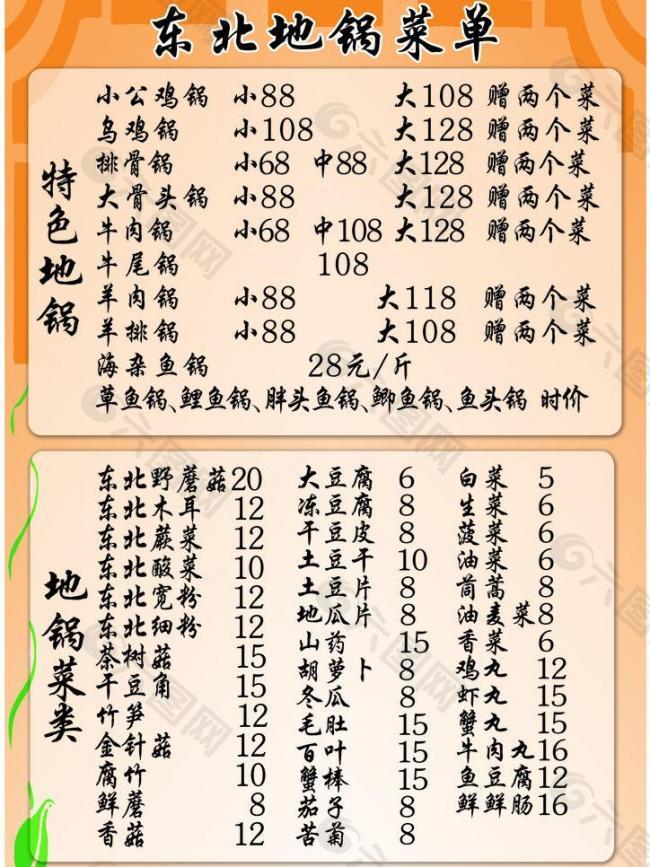 东北地锅菜单
特色地锅
小公鸡锅 小88 大108 赠两个菜
乌鸡锅 小108 大128 赠两个菜
排骨锅 小68 中88 大128 赠两个菜
大骨头锅 小88 大128 赠两个菜
牛肉锅 小68 中108 大128 赠两个菜
牛尾锅 108
羊肉锅 小88 大118 赠两个菜
羊排锅 小88 大108 赠两个菜
海杂鱼锅 28元/斤
草鱼锅、鲤鱼锅、胖头鱼锅、鲫鱼锅、鱼头锅 时价
地锅菜类
东北野蘑菇20
东北木耳 12
东北蕨菜 12
东北酸菜 10
东北宽粉 12
东北细粉 12
茶树菇 15
干豆角 15
竹笋 12
金针菇 12
腐竹 10
鲜蘑 8
香菇 12
大豆腐 6
冻豆腐 8
干豆皮 8
土豆干 10
土豆片 8
地瓜片 8
山药 15
胡萝卜 8
冬瓜 8
毛肚 15
百叶 15
蟹棒 15
茄子 8
苦菊 8
白菜 5
生菜 6
菠菜 6
油菜 6
茼蒿 8
油麦菜8
香菜 6
鸡丸 12
虾丸 15
蟹丸 15
牛肉丸16
鱼豆腐12
鲜鲜肠16
六图网